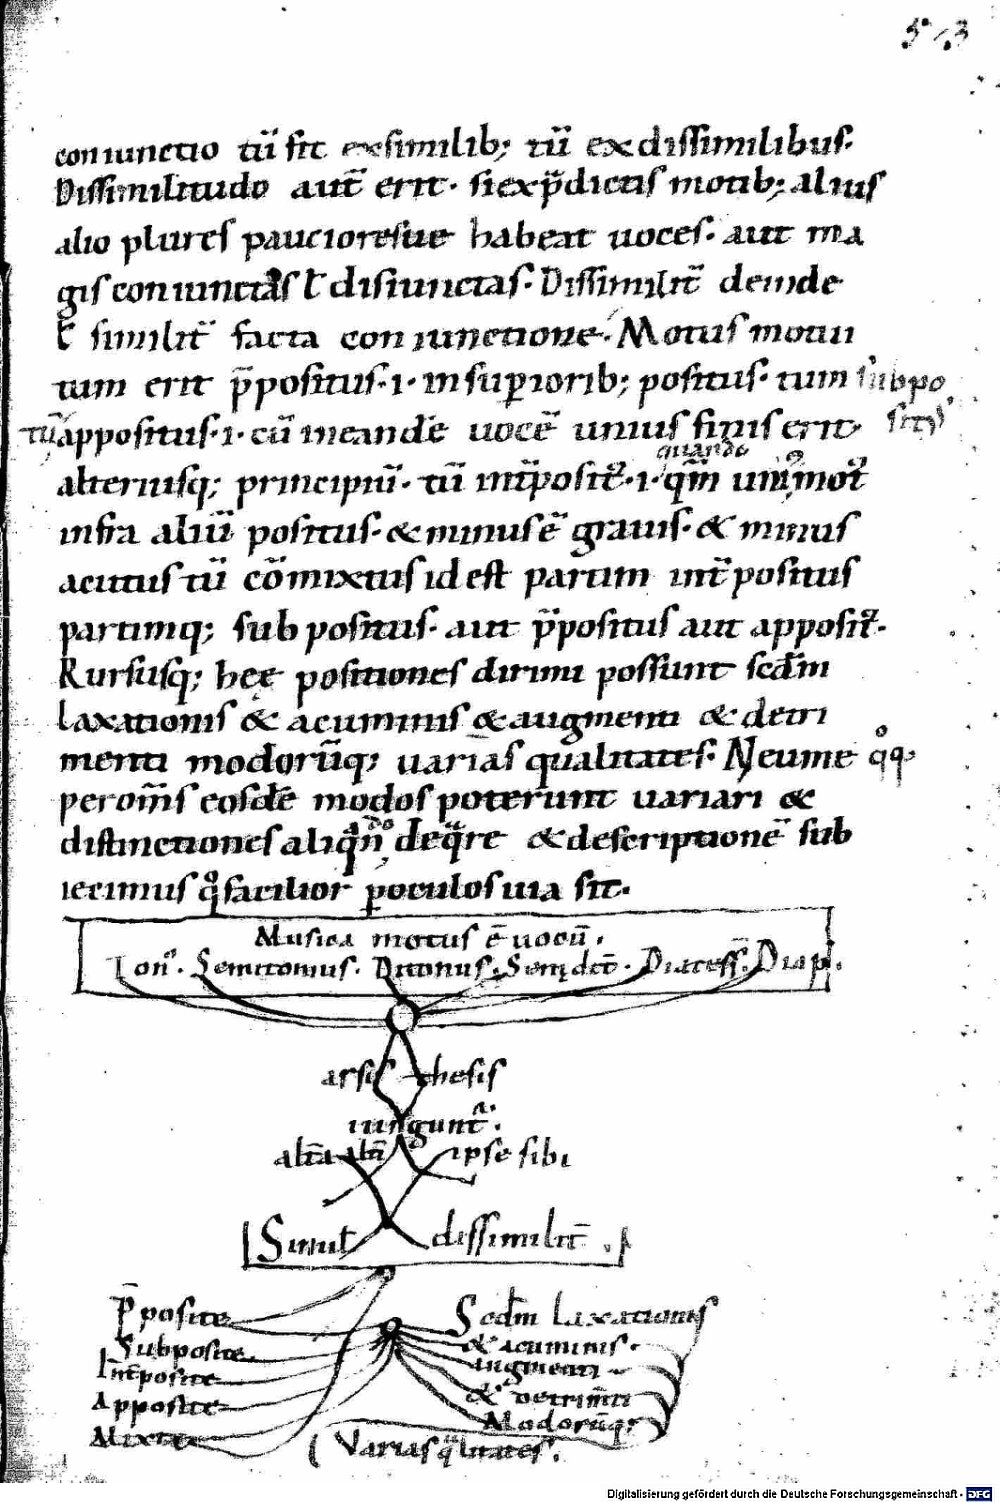 53
coniunctio tū sit exsimilib; tū exdissimilibus.
Dissimilitudo aut̄ erit. siexp̄dictis motib; alius
alio plures paucioresue habeat uoces. aut ma
gis coniunctas ł disiunctas. Dissimilit̄ deinde
ł similit̄ facta coniunctione. Motus motui
tum erit p̄positus. i. insuperiorib; positus. tum subpo
situs
tū appositus. i. cū ineandē uocē unius finis erit
quando
alteriusq; principiū. tū int̄posit᷒. i. qm̄ un᷒ mot᷒
infra aliū positus. & minus ē grauis. & minus
acutus tū cōmixtus id est partim int̄positus
partimq; subpositus. aut p̄positus aut apposit᷒.
Rursusq; hee positiones dirimi possunt scdm̄
laxationis & acuminis & augmenti & detri
menti modorūq; uarias qualitates. Neume qͦq;
per om̄s eosdē modos poterunt uariari &
distinctiones aliqn̄do deqͣre & descriptionē sub
iecimus qͦ facilior ꝑ oculos uia sit.
Musica motus ē uocū.
Ton᷒. Semitonius. Ditonus. Semidit̄. Diatess̄. Diap̄.
arsis thesis
iungunt᷒.
alt̄a alt̄i ipse sibi
Simił dissimilit̄.
P̄posite Scdm̄ laxationis
Subposite & acuminis.
Int̄posite augmenti
Apposite & detrim̄ti
Mixte Modorūq;
Varias qͣlitates.
Digitalisierung gefördert durch die Deutsche Forschungsgemeinschaft - DFG